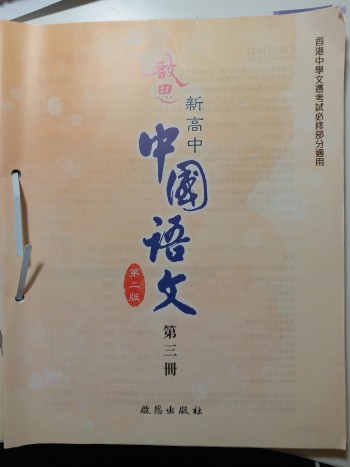 香港中學文憑考試必修部分適用
啟思
新高中
中國語文
第二版
第三冊
啟思出版社